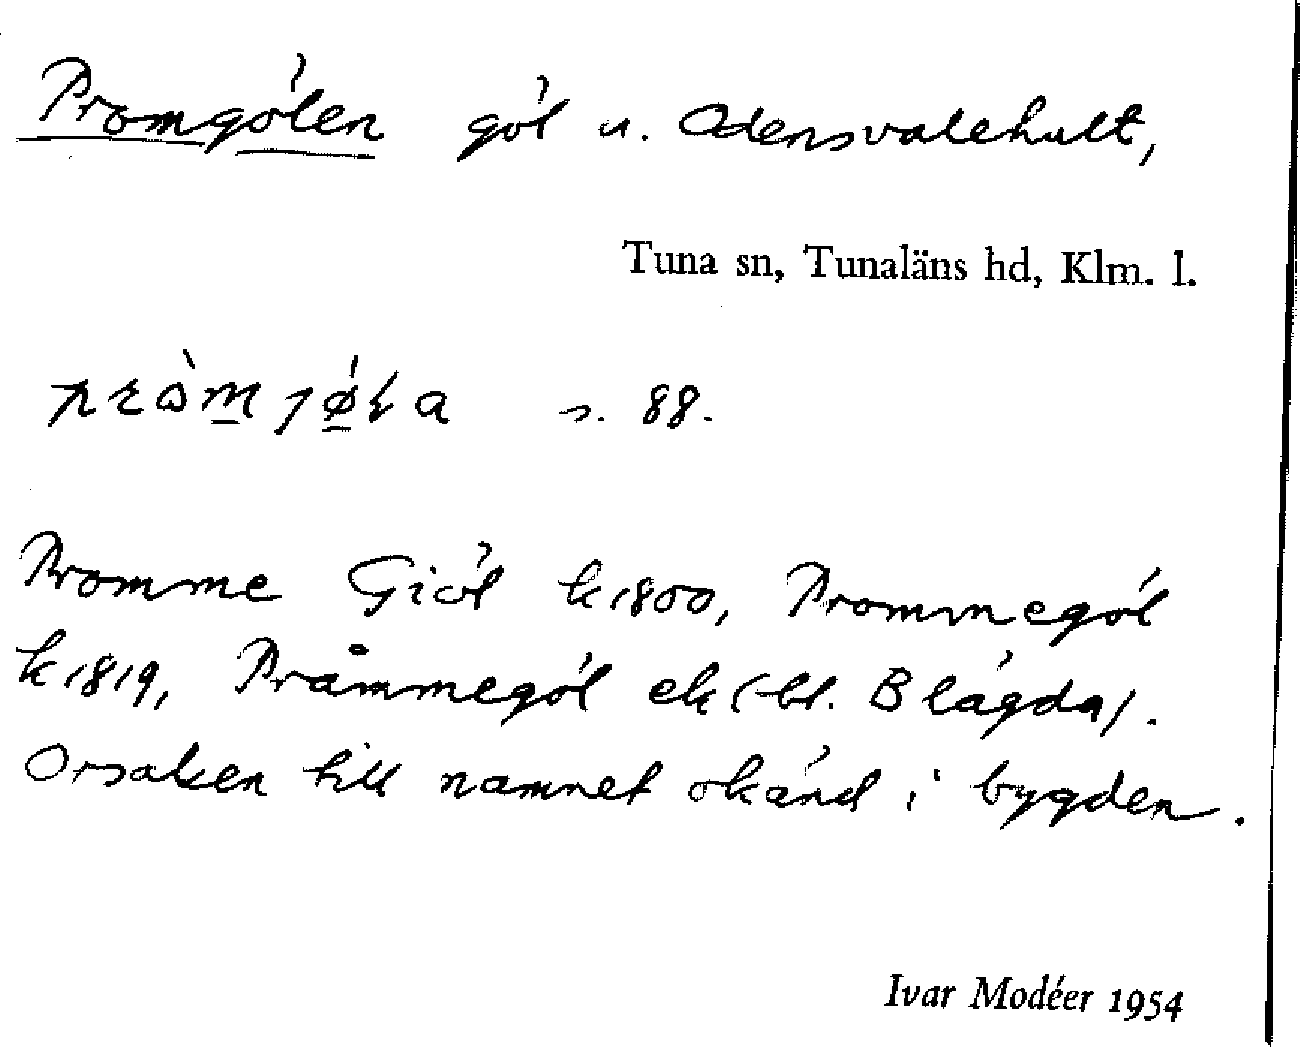 Promgölen göl u. Odensvalehult,
Tuna sn, Tunaläns hd, Klm. l.
s. 88.
Promme Giöl k 1800, Prommegöl
k 1819, Pråmmegöl ek (bl. Blågda).
Orsaken till namnet okänd i bygden.
Ivar Modéer 1954